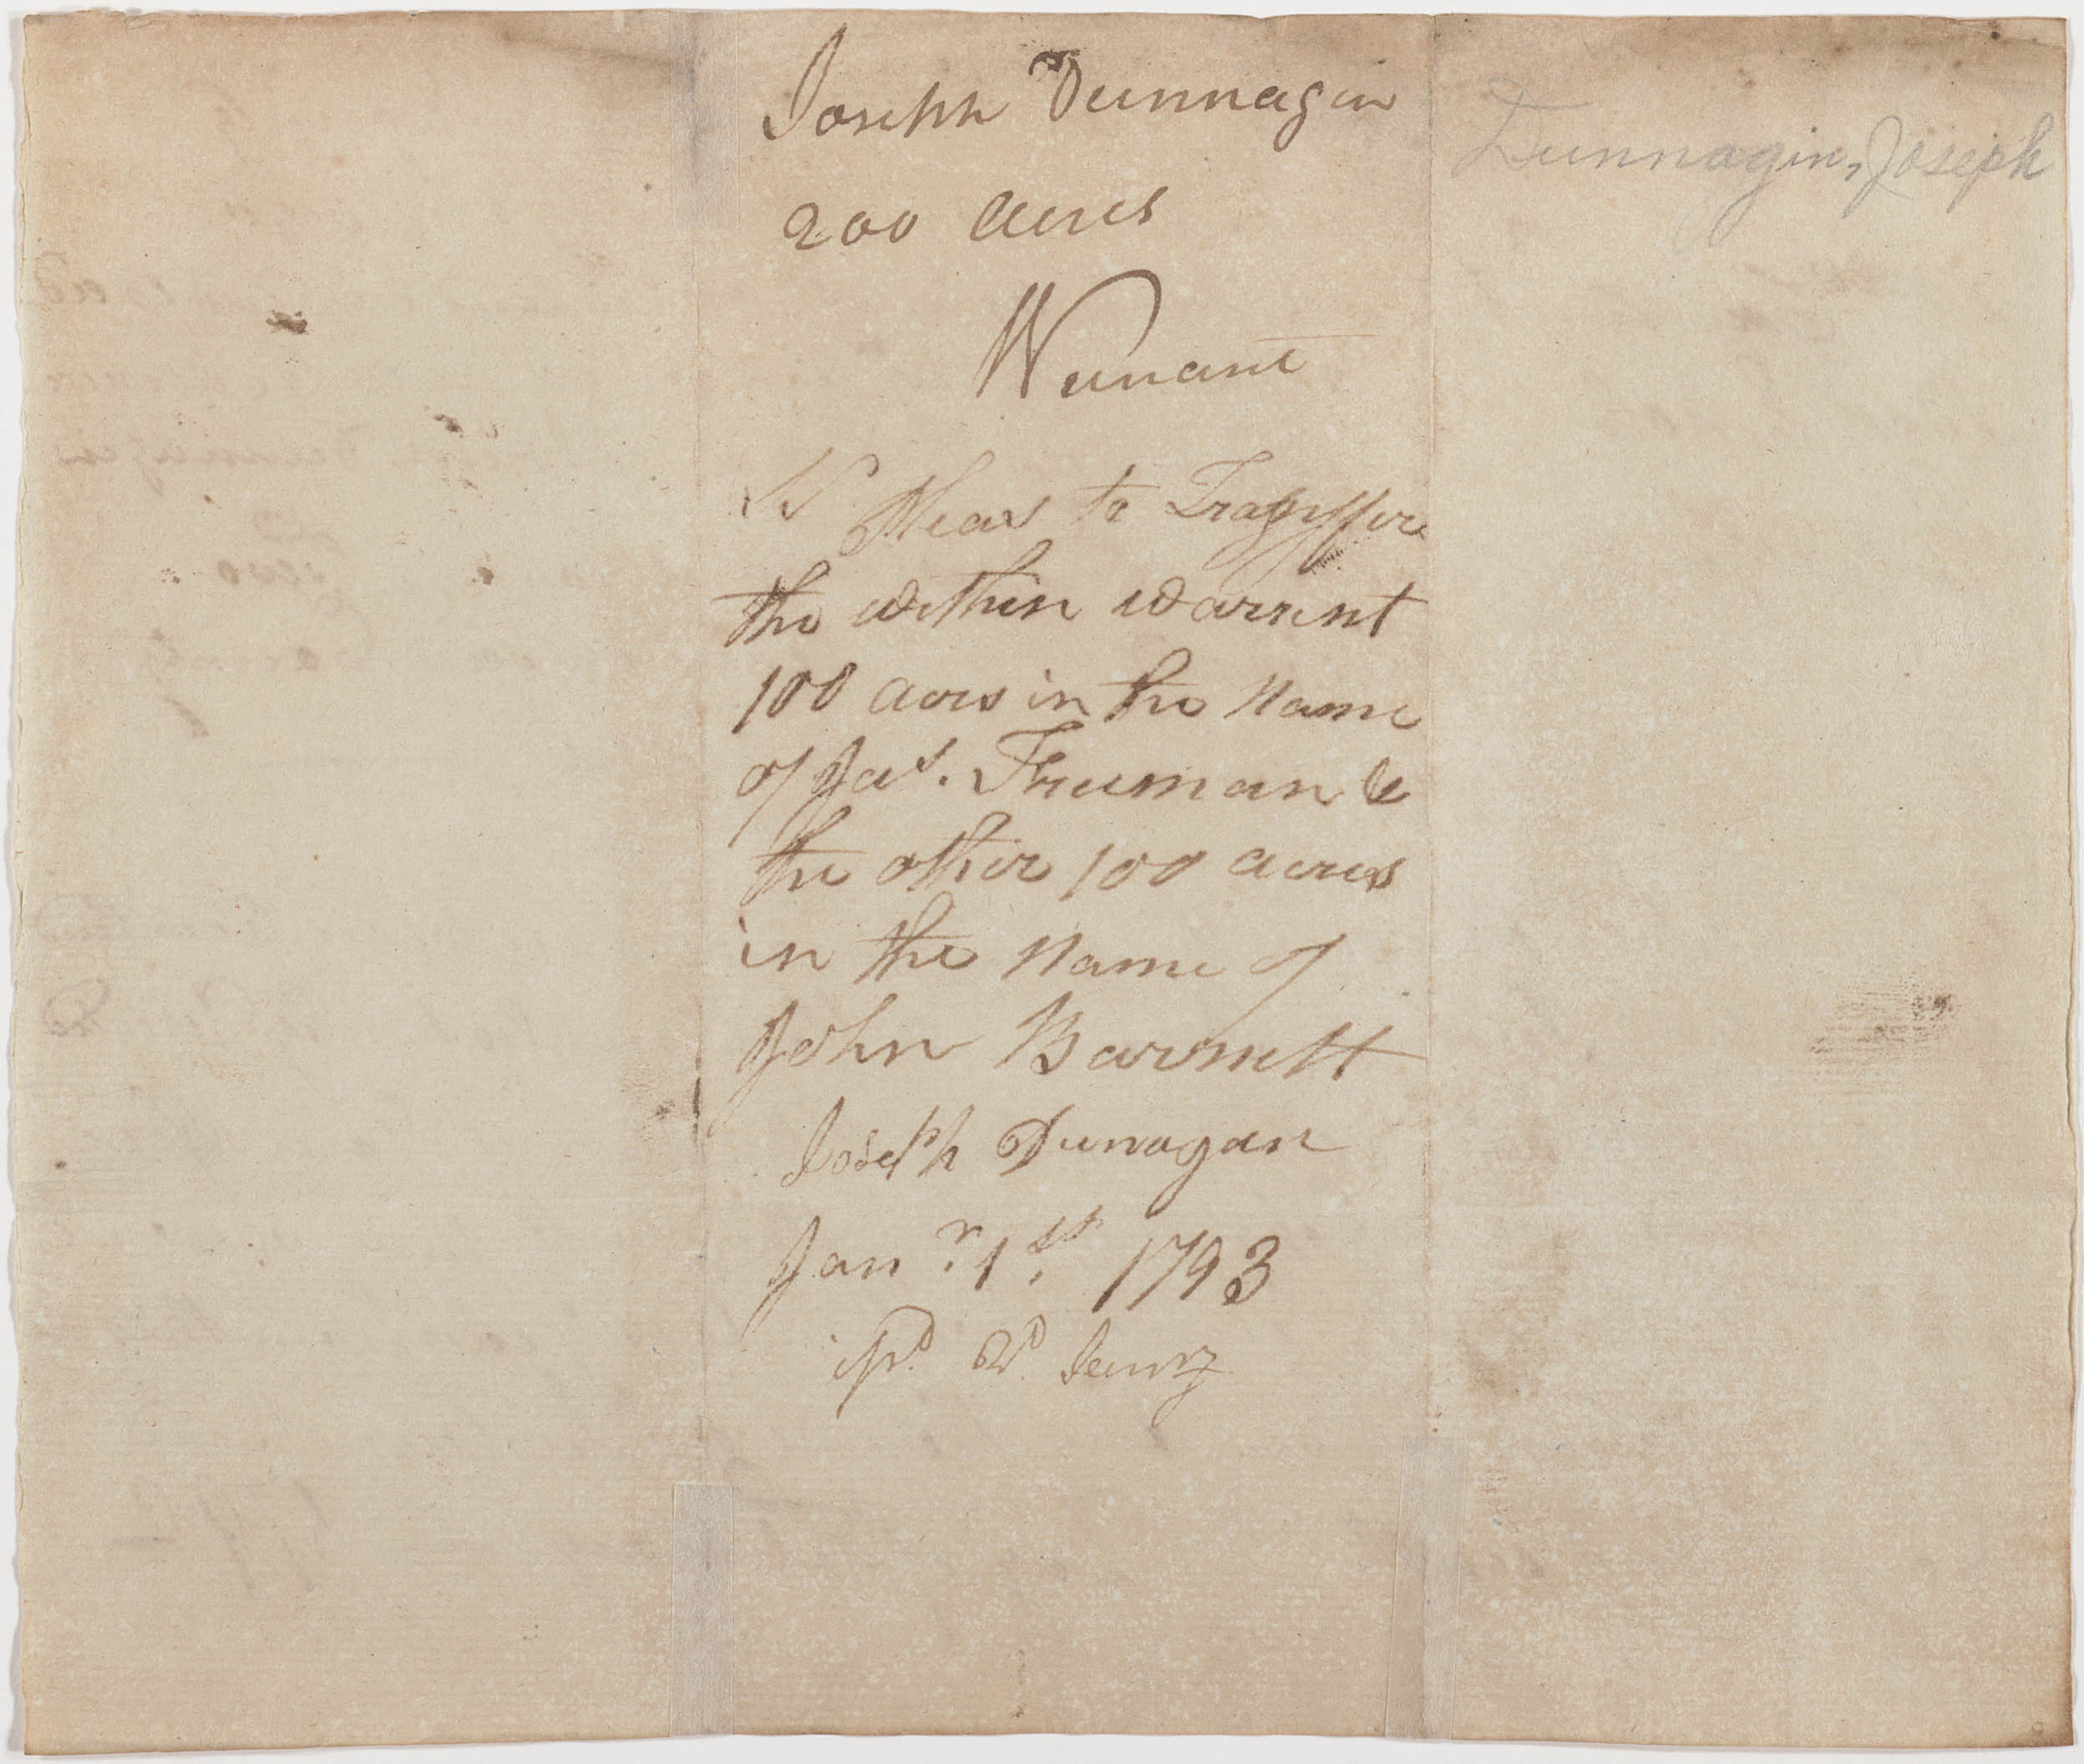 Joseph Dunnagin
200 acres
Warrant
Sr Pleas to Transffere
the within warrent
100 acres in the Name
of Jas. Truman &
the other 100 acres
in the Name of
John Barnett
Joseph Dunagan
Janr. 1st. 1793
Dunnagin, Joseph